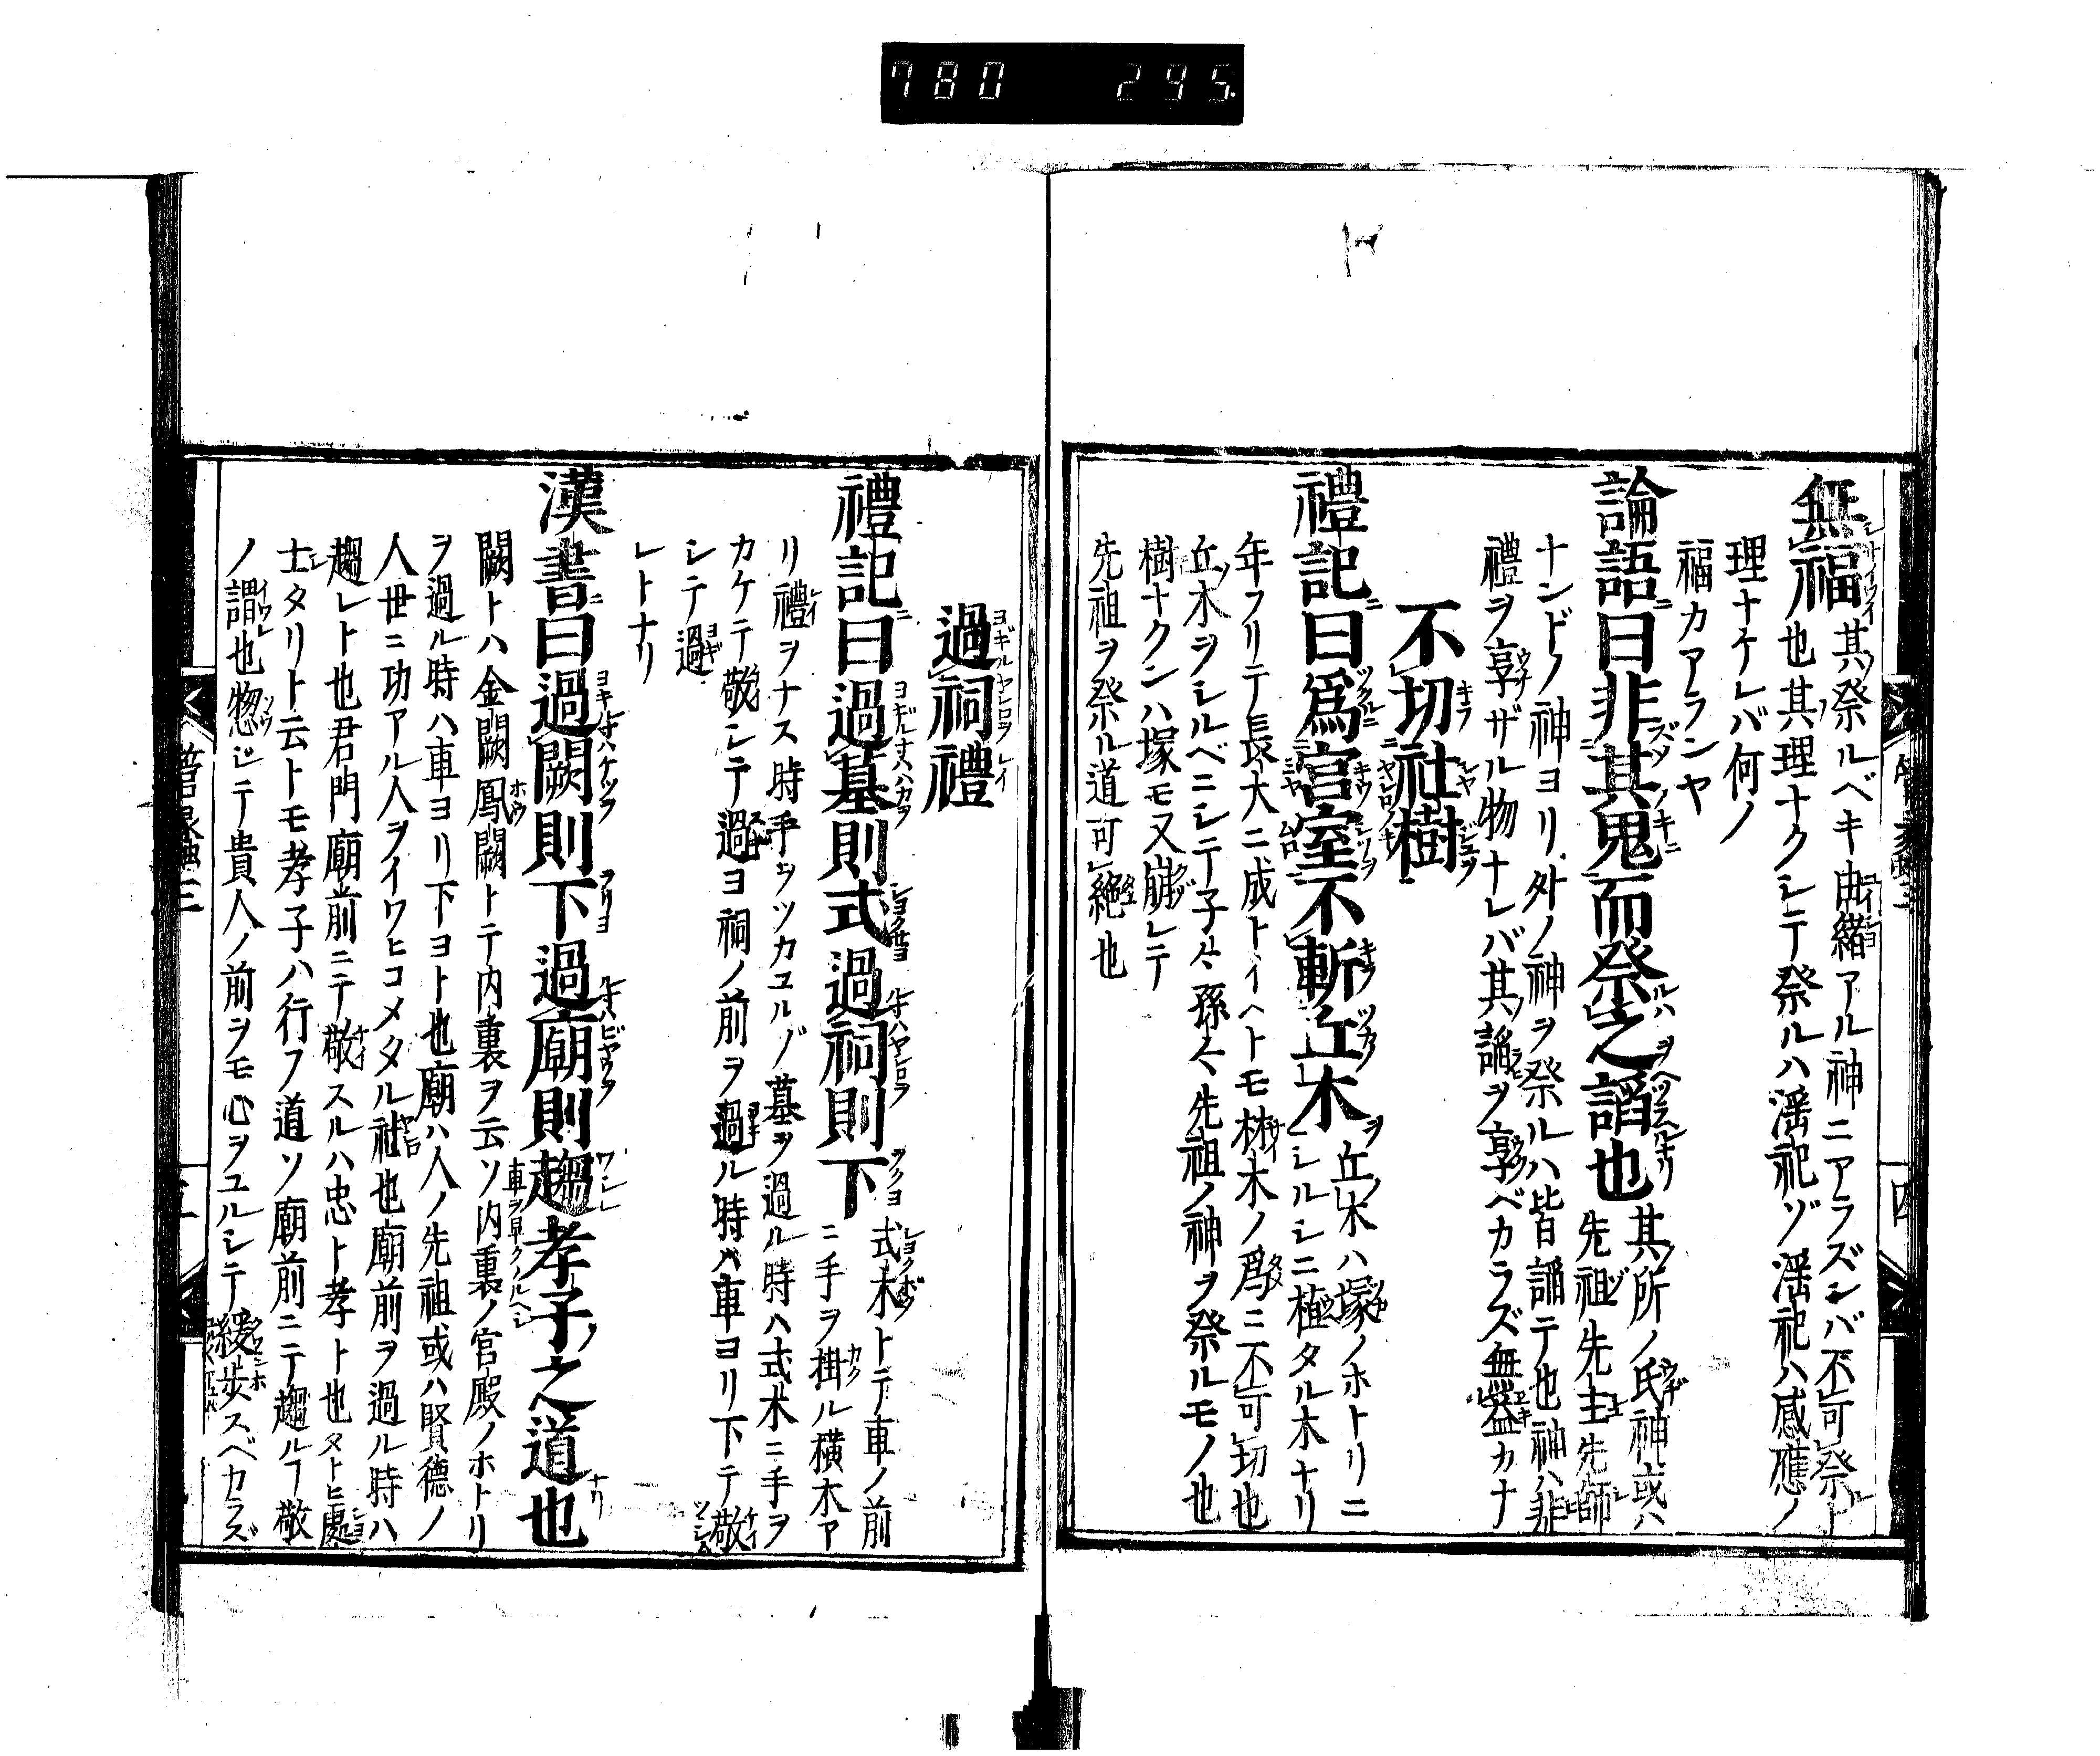 780 295.
無福其祭ルベキ由緒アル神ニアラズンバ不可祭ト
也其理ナクシテ祭ルハ滛祀ゾ滛祀ハ感應ノ
理ナケレバ何ノ
福カアランヤ
論語曰非其鬼而祭之謟也其所ノ氏神或ハ
先祖先主先師
ナンドノ神ヨリ外ノ神ヲ祭ルハ皆謟テ也神ハ非
禮ヲ享ザル物ナレバ其謟ヲ享ベカラズ無益カナ
不切社樹
禮記曰爲宮室不斬丘木丘木ハ塚ノホトリニ
シルシニ植タル木ナリ
年フリテ長大ニ成トイヘトモ材木ノ爲ニ不可切也
丘木ヲシルベニシテ子々孫々先祖ノ神ヲ祭ルモノ也
樹ナクンハ塚モ又崩レテ
先祖ヲ祭ル道可絶也
過祠禮
禮記曰過墓則式過祠則下式木トテ車ノ前
ニ手ヲ掛ル横木ア
リ禮ヲナス時手ヲツカユルゾ墓ヲ過ル時ハ式木ニ手ヲ
カケテ敬シテ過ヨ祠ノ前ヲ過ル時ハ車ヨリ下テ敬
シテ過
レトナリ
漢書曰過闕則下過廟則趨孝子之道也
闕トハ金闕鳳闕トテ内裏ヲ云ソ内裏ノ官殿ノホトリ
ヲ過ル時ハ車ヨリ下ヨト也廟ハ人ノ先祖或ハ賢德ノ
人世ニ功アル人ヲイワヒコメタル社也廟前ヲ過ル時ハ
趨レト也君門廟前ニテ敬スルハ忠ト孝ト也タトヒ處
士タリト云トモ孝子ハ行フ道ソ廟前ニテ趨ルヿ敬
ノ謂也惣ジテ貴人ノ前ヲモ心ヲユルシテ緩歩スベカラズ